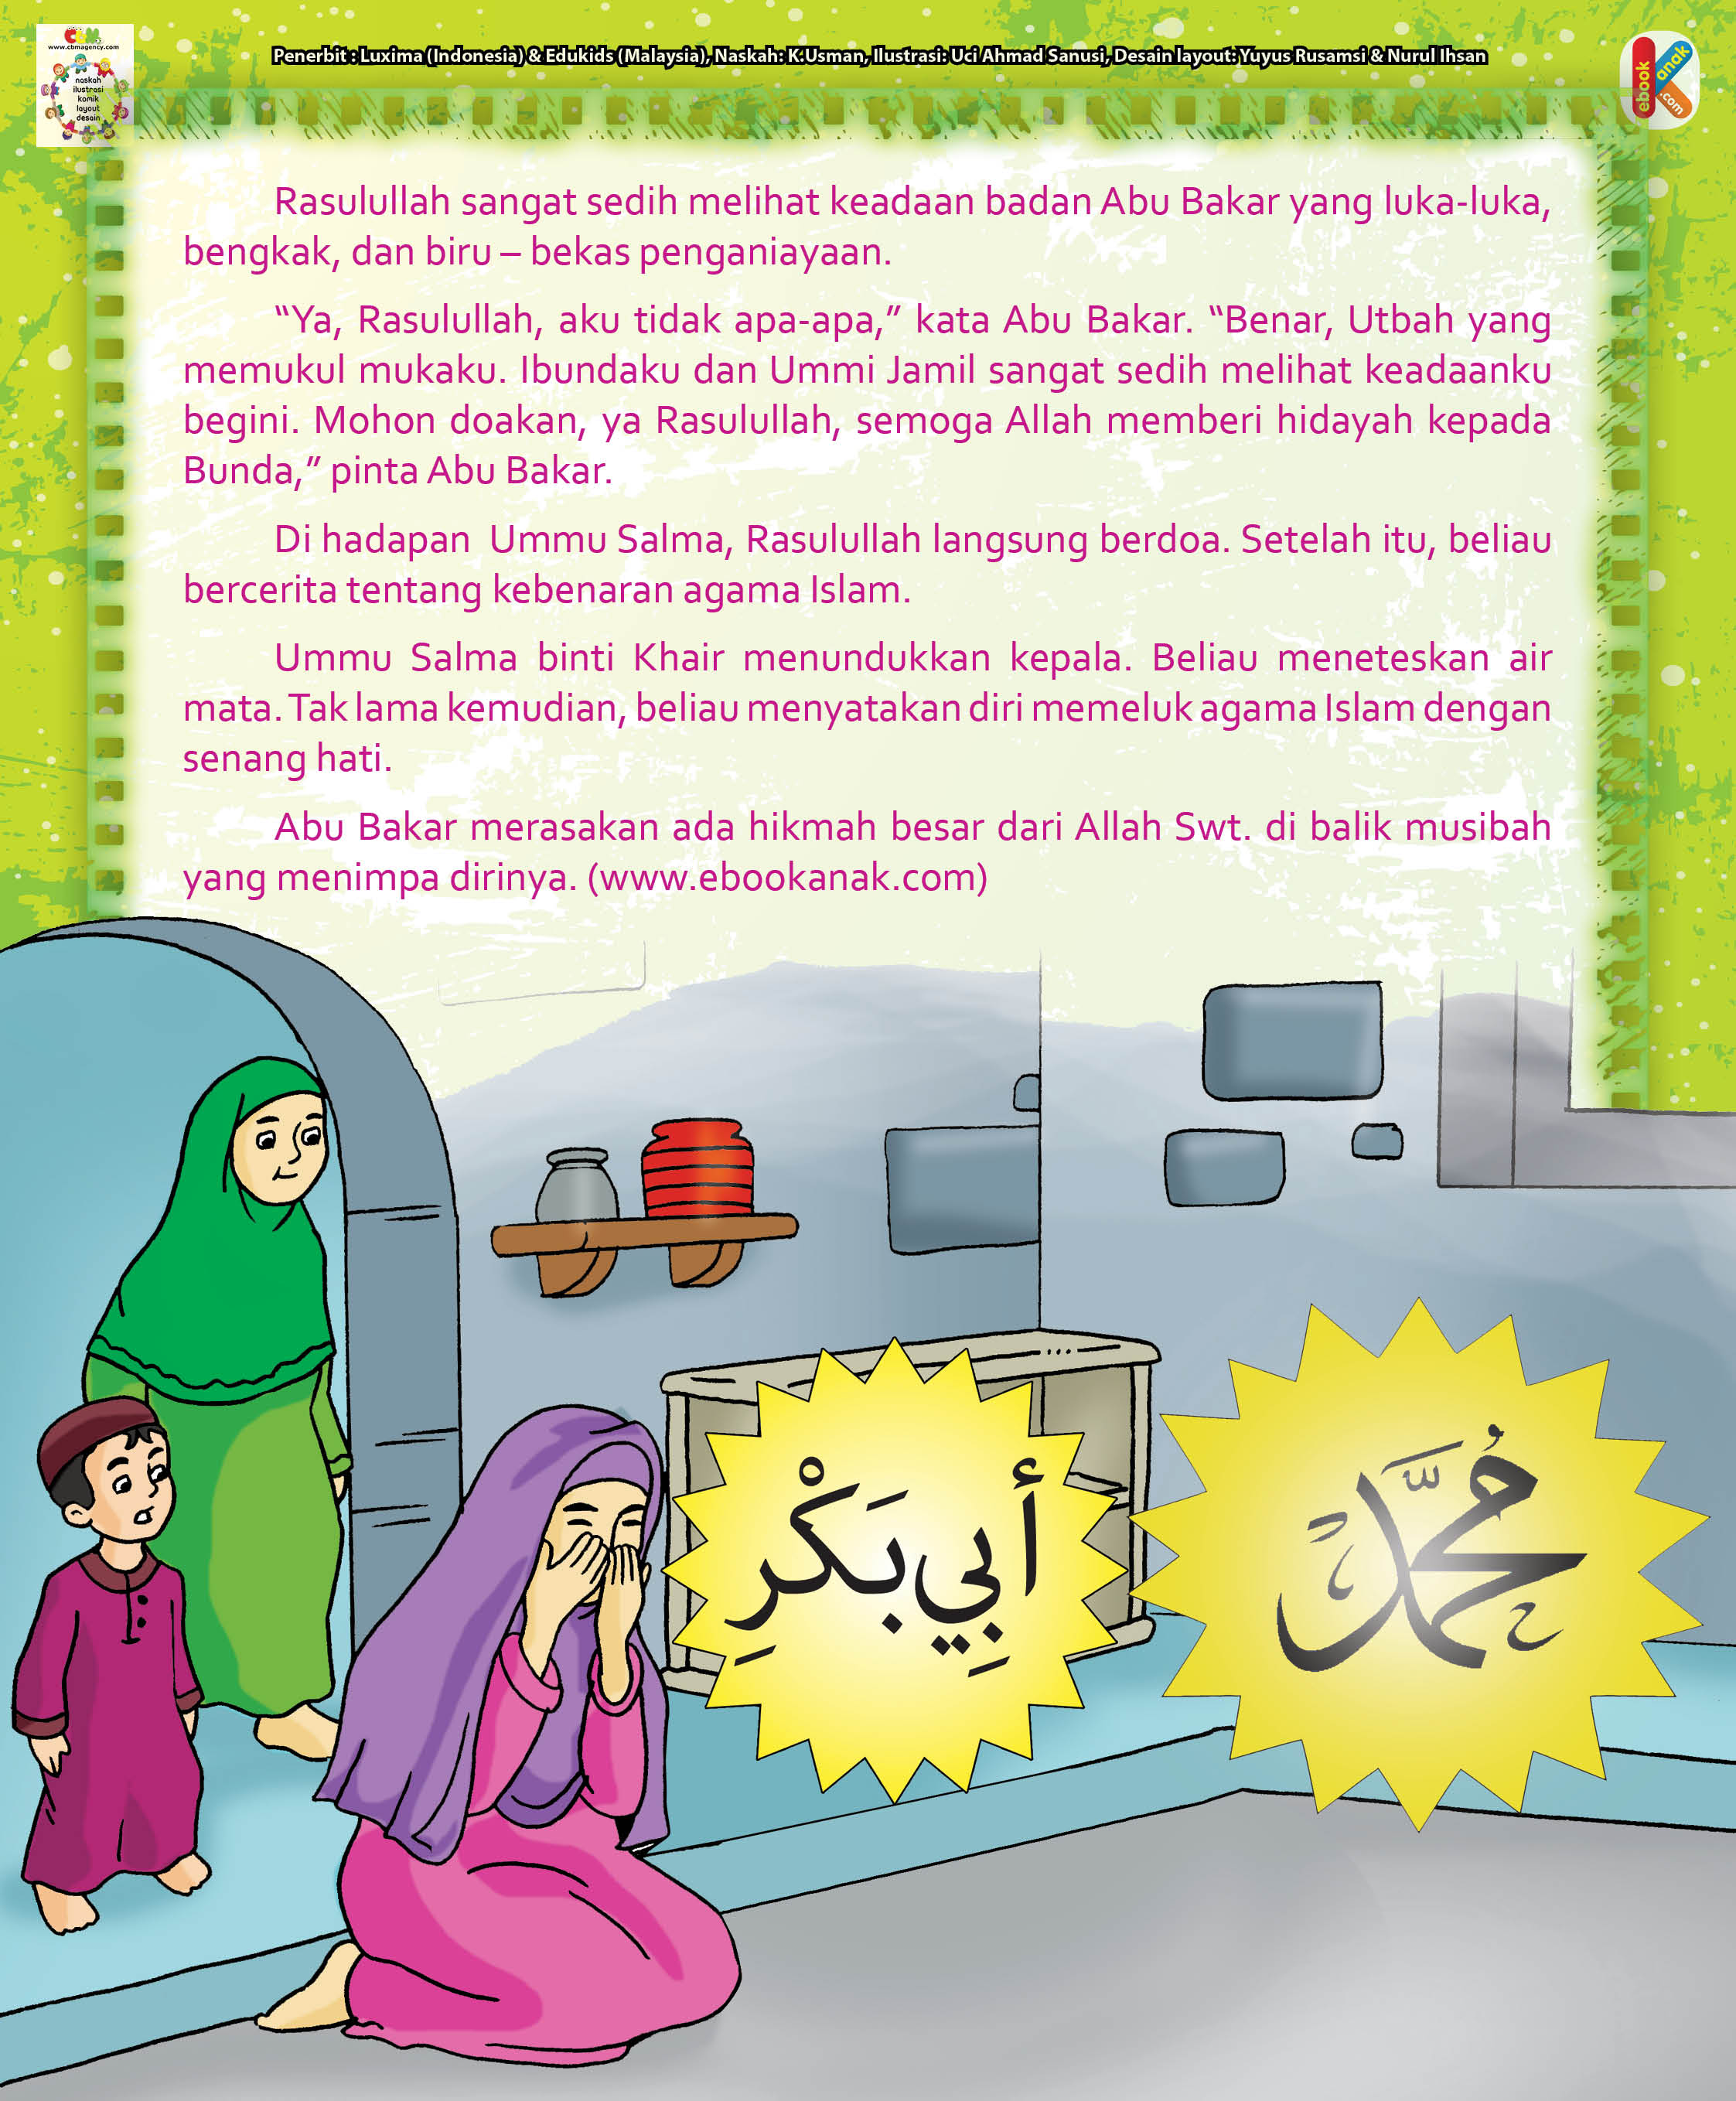 CBM
www.cbmagency.com
naskah
ilustrasi
komik
layout
desain
Penerbit : Luxima (Indonesia) & Edukids (Malaysia), Naskah: K.Usman, Ilustrasi: Uci Ahmad Sanusi, Desain layout: Yuyus Rusamsi & Nurul Ihsan
ebook
anak
.com
Rasulullah sangat sedih melihat keadaan badan Abu Bakar yang luka-luka,
bengkak, dan biru – bekas penganiayaan.
“Ya, Rasulullah, aku tidak apa-apa,” kata Abu Bakar. “Benar, Utbah yang
memukul mukaku. Ibundaku dan Ummi Jamil sangat sedih melihat keadaanku
begini. Mohon doakan, ya Rasulullah, semoga Allah memberi hidayah kepada
Bunda,” pinta Abu Bakar.
Di hadapan  Ummu Salma, Rasulullah langsung berdoa. Setelah itu, beliau
bercerita tentang kebenaran agama Islam.
Ummu Salma binti Khair menundukkan kepala. Beliau meneteskan air
mata. Tak lama kemudian, beliau menyatakan diri memeluk agama Islam dengan
senang hati.
Abu Bakar merasakan ada hikmah besar dari Allah Swt. di balik musibah
yang menimpa dirinya. (www.ebookanak.com)
أَبِي بَكْرِ
مُحَمَّد